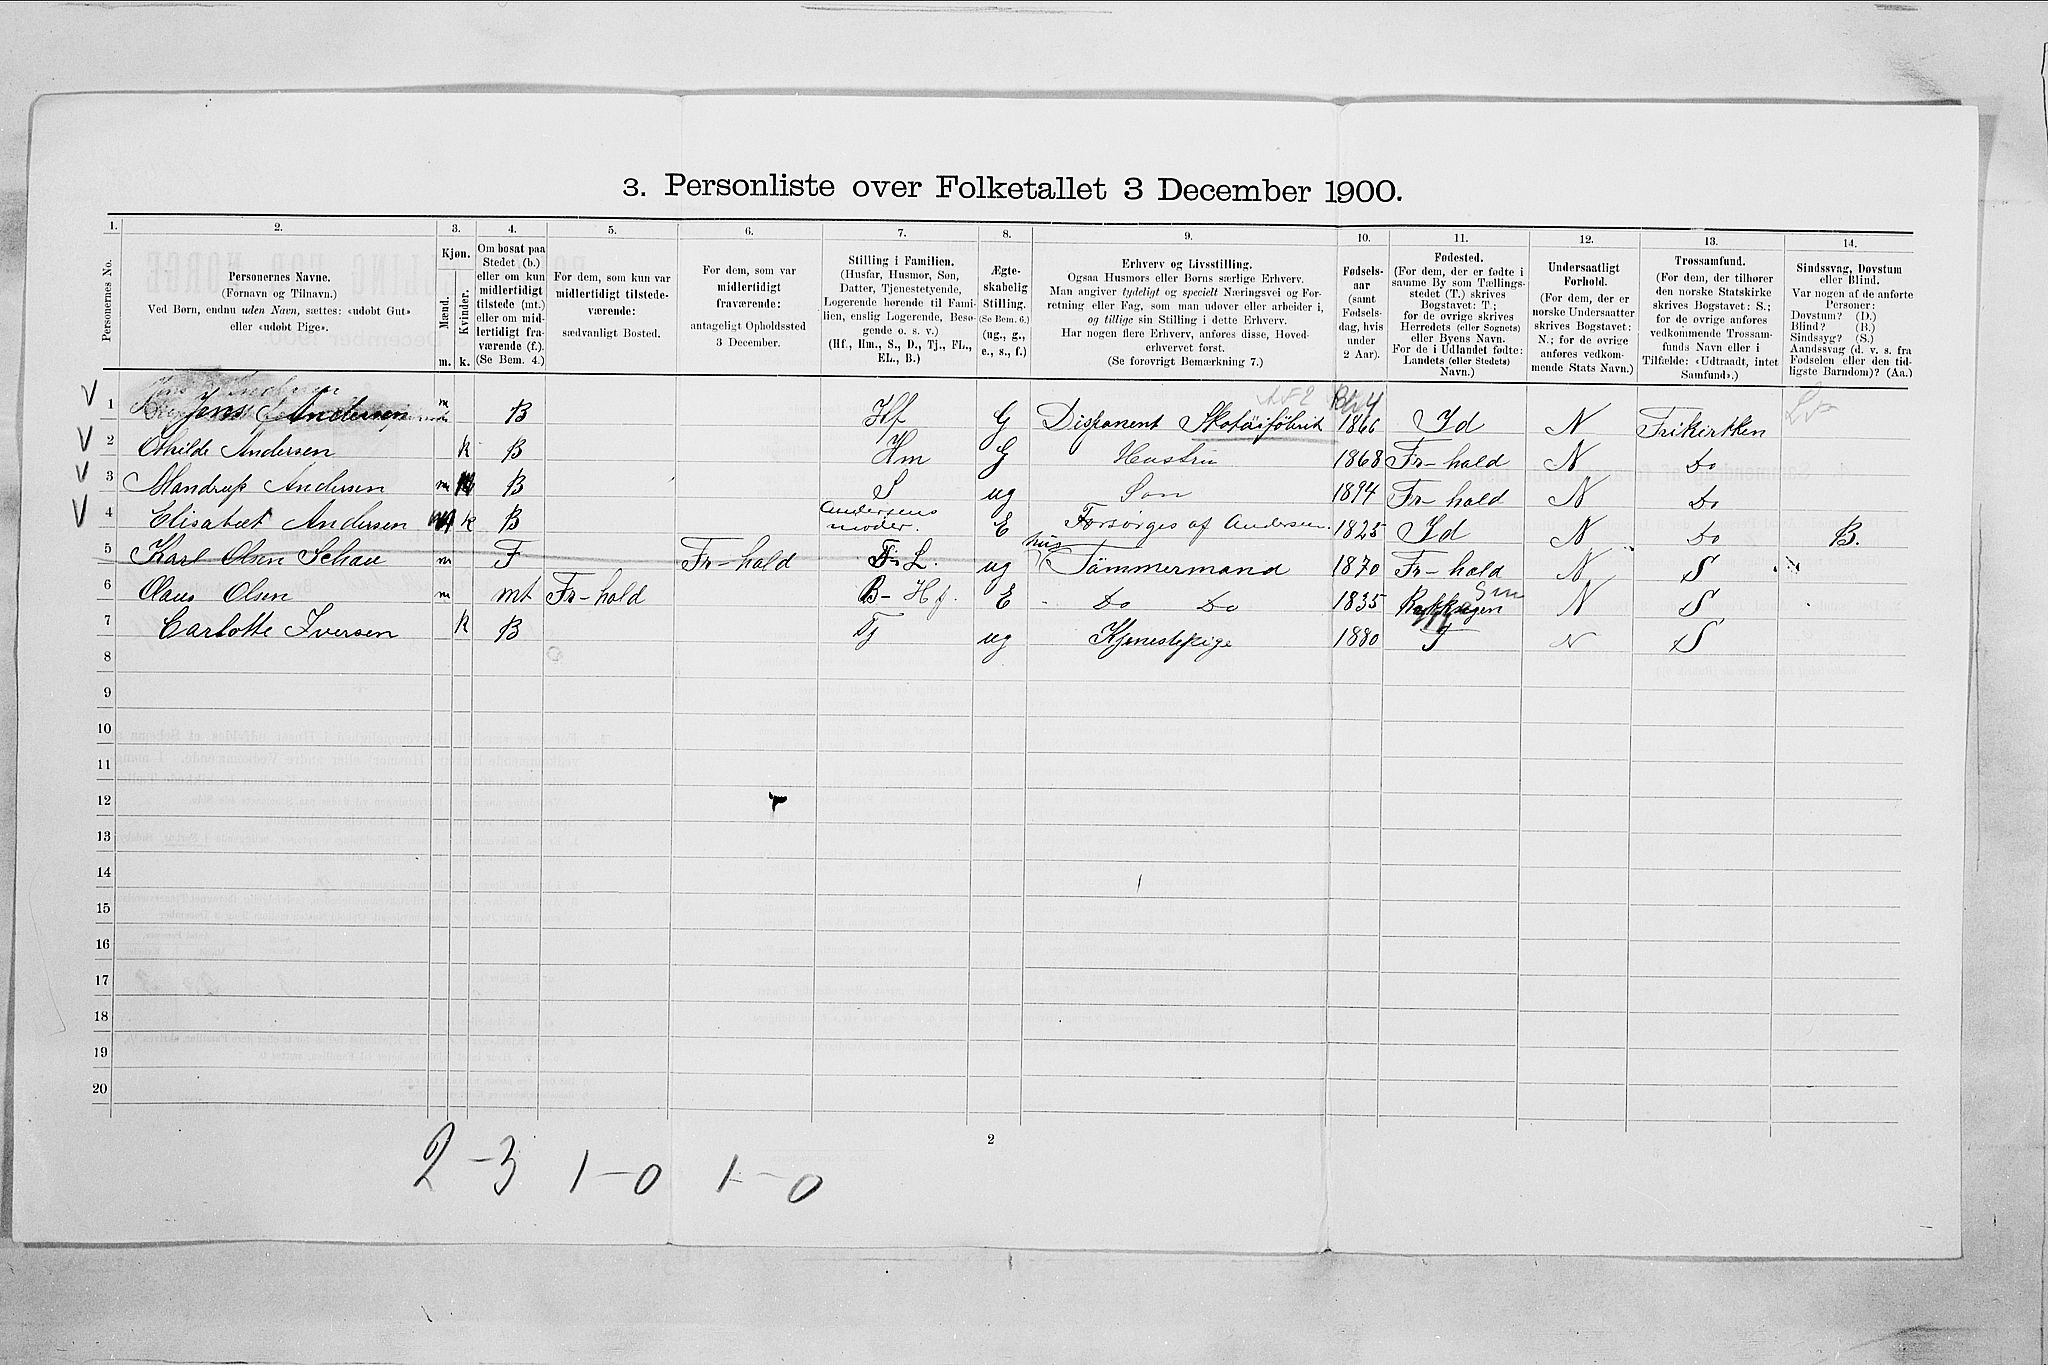 3. Personliste over Folketallet 3 December 1900.
1. 2. 3. 4. 5. 6. 7. 8. 9. 10. 11. 12. 13. 14.
Personernes No.
Personernes Navne.
(Fornavn og Tilnavn.)
Ved Børn, endnu uden Navn, sættes: «udøbt Gut»
eller «udøbt Pige».
Kjøn.
Mænd.
Kvinder.
m. k.
Om bosat paa
Stedet (b.)
eller om kun
midlertidigt
tilstede (mt.)
eller om mid-
lertidigt fra-
værende (f.).
(Se Bem. 4.)
For dem, som kun var
midlertidigt tilstede-
værende:
sædvanligt Bosted.
For dem, som var
midlertidigt
fraværende:
antageligt Opholdssted
3 December.
Stilling i Familien.
(Husfar, Husmor, Søn,
Datter, Tjenestetyende,
Logerende hørende til Fami-
lien, enslig Logerende, Besø-
gende o. s. v.)
(Hf., Hm., S., D., Tj., FL.,
EL., B.)
Ægte-
skabelig
Stilling.
(Se Bem. 6.)
(ug., g.,
e., s., f.)
Erhverv og Livsstilling.
Ogsaa Husmors eller Børns særlige Erhverv.
Man angiver tydeligt og specielt Næringsvei og For-
retning eller Fag, som man udøver eller arbeider i,
og tillige sin Stilling i dette Erhverv.
Har nogen flere Erhverv, anføres disse, Hoved-
erhvervet først.
(Se forøvrigt Bemærkning 7.)
Fødsels-
aar
(samt
Fødsels-
dag, hvis
under
2 Aar).
Fødested.
(For dem, der er fødte i
samme By som Tællings-
stedet (T.) skrives
Bogstavet: T;
for de øvrige skrives
Herredets (eller Sognets)
eller Byens Navn.
For de i Udlandet fødte:
Landets (eller Stedets)
Navn.)
Undersaatligt
Forhold.
(For dem, der er
norske Undersaatter
skrives Bogstavet:
N.; for de øvrige
anføres vedkom-
mende Stats Navn.)
Trossamfund.
(For dem, der tilhører
den norske Statskirke
skrives Bogstavet: S.;
for de øvrige anføres
vedkommende Trossam-
funds Navn eller i
Tilfælde: «Udtraadt, intet
Samfund».)
Sindssvag, Døvstum
eller Blind.
Var nogen af de anførte
Personer:
Døvstum? (D.)
Blind? (B.)
Sindssyg? (S.)
Aandssvag (d. v. s. fra
Fødselen eller den tid-
ligste Barndom)? (Aa.)
V 1 Jens Andersen m B Hf G Disponent Skotøifäbrik 1866 Id N Frikirkken
V 2 Othilde Andersen k B Hm G Hustru 1868 Fr-hald N Do
V 3 Mandrup Andersen m B S ug Søn 1894 Fr-hald N Do
V 4 Elisabet Andersen k B Andersens moder. E Forsørges af Andersen. 1825 Id N Do B.
5 Karl Olsen Schau m F Fr-hald L. ug hus Tömmermand 1870 Fr-hald N S
6 Claus Olsen m mt Fr-hold B- Hf. E Do Do 1835 N S
7 Carlotte Iversen k B Tj ug Kjenestepige 1880 T N S
8
9
10
11
12
13
14
15
16
17
18
19
20
2
2-3 1-0 1-0